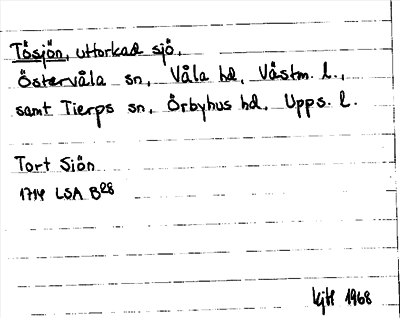 Tösjön, uttorkad sjö,
Östervåla sn, Våla hd, Västm. l.,
samt Tierps sn, Örbyhus hd, Upps. l.
Tort Siön
1714 LSA B28
1968